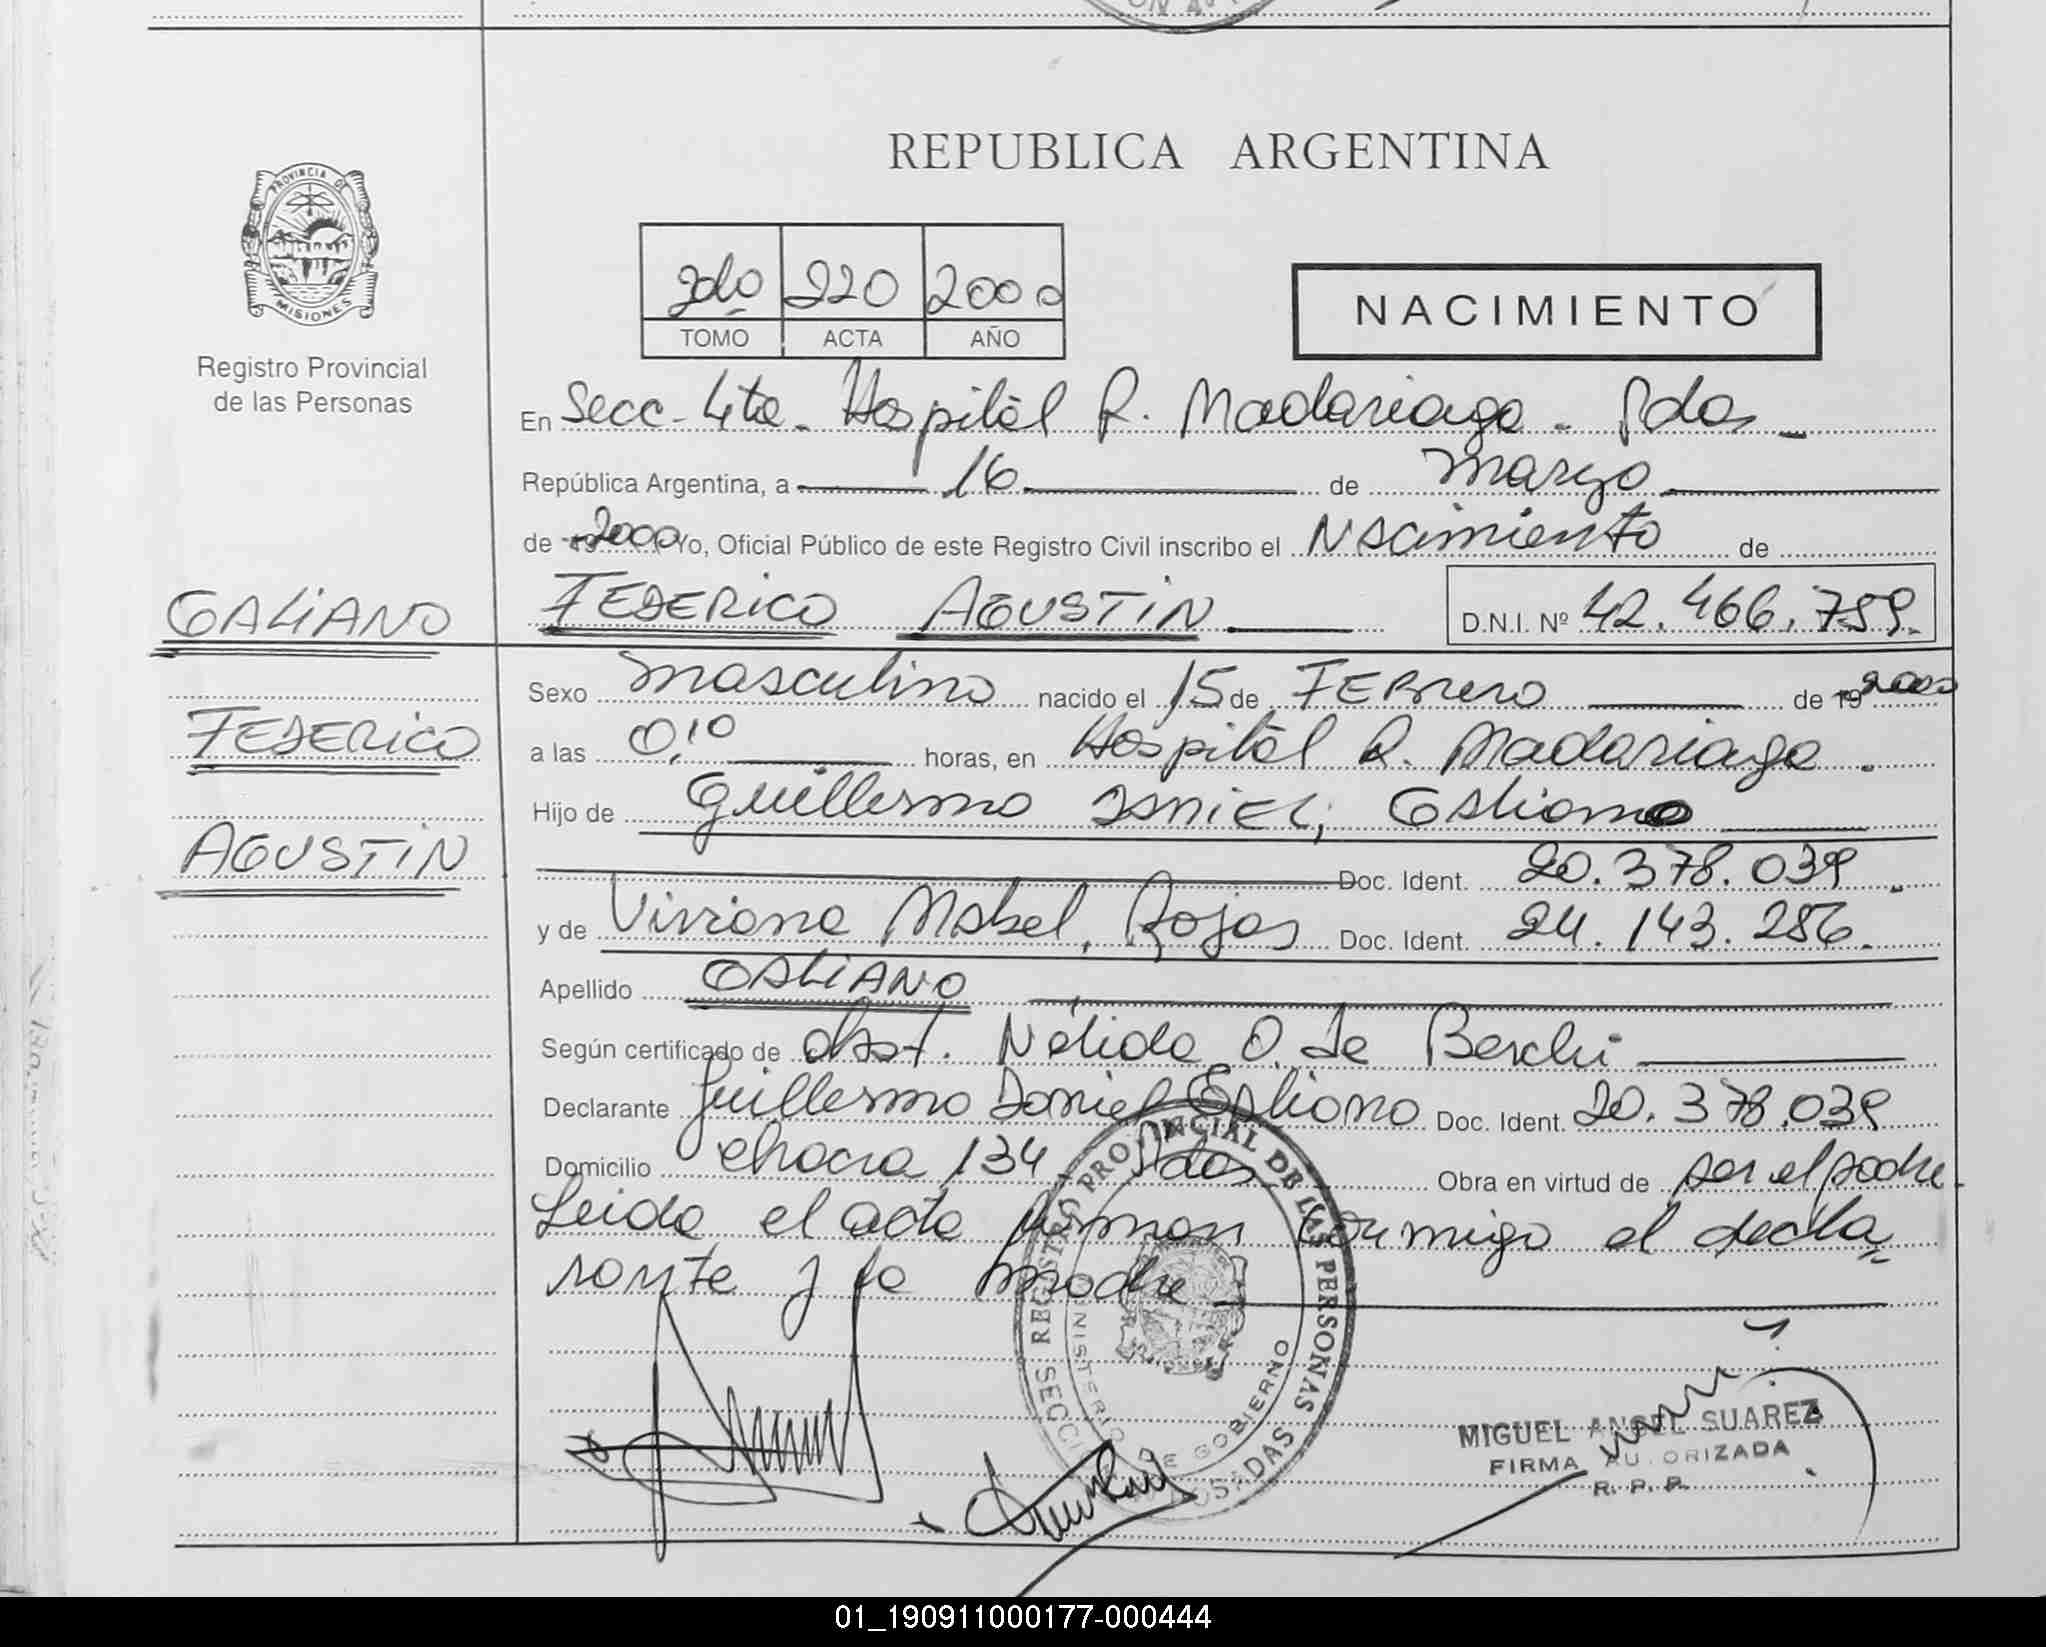 REPUBLICA ARGENTINA
PROVINCIA DE
MISIONES
Registro Provincial
de las Personas
2do 220 2000
TOMO ACTA AÑO
NACIMIENTO
En Secc - 4ta - Hospital R. Madariaga - Pdas -
República Argentina, a 16 de Marzo
de 19 2000 Yo, Oficial Público de este Registro Civil inscribo el Nacimiento de
GALIANO
FEDERICO AGUSTIN D.N.I. Nº 42.466.759.
Sexo Masculino nacido el 15 de FEBrero de 19 2000
FEDERICO
a las 0,10 horas, en Hospital R. Madariaga.
Hijo de Guillermo DANIEL, GALiano
AGUSTIN
Doc. Ident. 20.378.039.
y de Viviana Mabel, Rojas Doc. Ident. 24.143.286.
Apellido GALIANO
Según certificado de obst. Nélida O. de Berchi
Declarante Guillermo Daniel Galiano Doc. Ident. 20.378.039
Domicilio chacra 134 Pdas Obra en virtud de ser el padre
Leida el acta firman conmigo el decla
rante y la madre
REGISTRO PROVINCIAL DE LAS PERSONAS
MINISTERIO DE GOBIERNO
POSADAS
MIGUEL ANGEL SUAREZ
FIRMA AUTORIZADA
R. P. P.
01_190911000177-000444